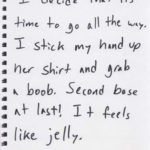 I decide that it's
time to go all the way.
I stick my hand up
her shirt and grab
a boob. Second base
at last! It feels
like jelly.